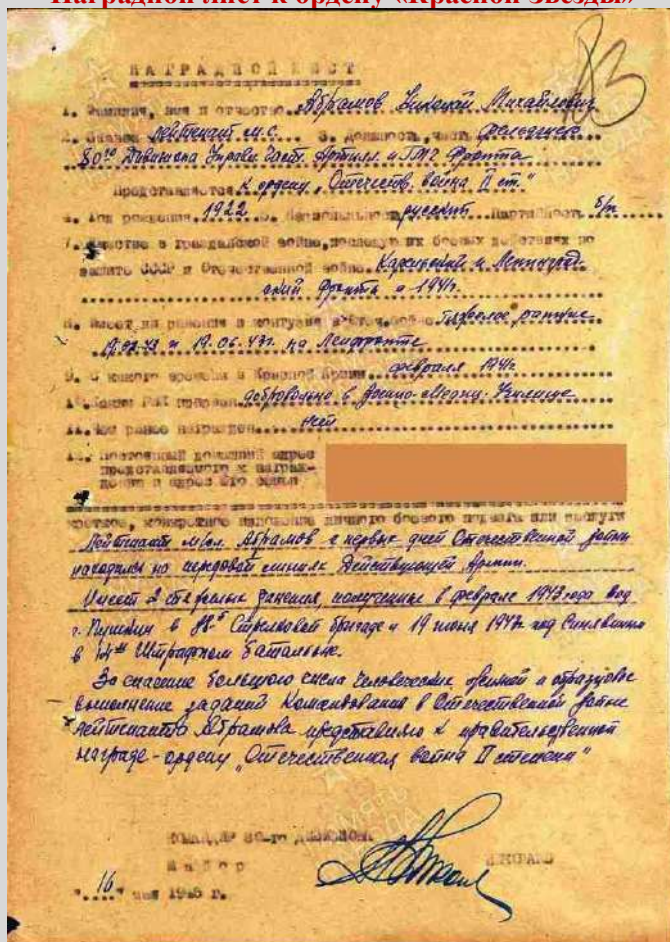 Наградной лист к ордену «Красной Звезды»
83
НАГРАДНОЙ ЛИСТ
1. Фамилия, имя и отчество Абрамов Николай Михайлович
2. Звание лейтенант м.с. 3. Должность, часть фельдшер
80го Дивизиона Управл. Части Артилл. и ГМЧ Фронта
Представляется к ордену „Отечеств. война II ст."
4. Год рождения 1922 5. Национальность русский Партийность б/п
7. Участие в гражданской войне, последующих боевых действиях по
защите СССР и Отечественной войне Карельский и Ленинград-
ский фронты с 1941г.
8. Имеет ли ранения и контузии в Отеч.войне тяжелое ранение
.02.43 и 19.06.43г. на Ленфронте
9. С какого времени в Красной Армии февраля 1941г.
10. Каким РВК призван добровольно в Военно-Медиц. Училище
11. Чем ранее награжден нет
12. Постоянный домашний адрес
представляемого к награж-
дению и адрес его семьи
краткое, конкретное изложение личного боевого подвига или заслуги
Лейтенант м/сл. Абрамов с первых дней Отечественной войны
находился на передовой линии Действующей Армии.
Имеет 2 ранения, полученные в феврале 1943 года под
г. Пушкин в 88-й Стрелковой бригаде и 19 июня 1943г. под Синявином
в 14ом Штрафном батальоне.
За спасение большого числа человеческих жизней и образцовое
выполнение заданий Командования в Отечественной войне
лейтенант Абрамова представляю к правительственной
награде - ордену „Отечественная война II степени"
КОМАНДИР 80-го ДИВИЗИОНА
Майор
"16" мая 1945 г.